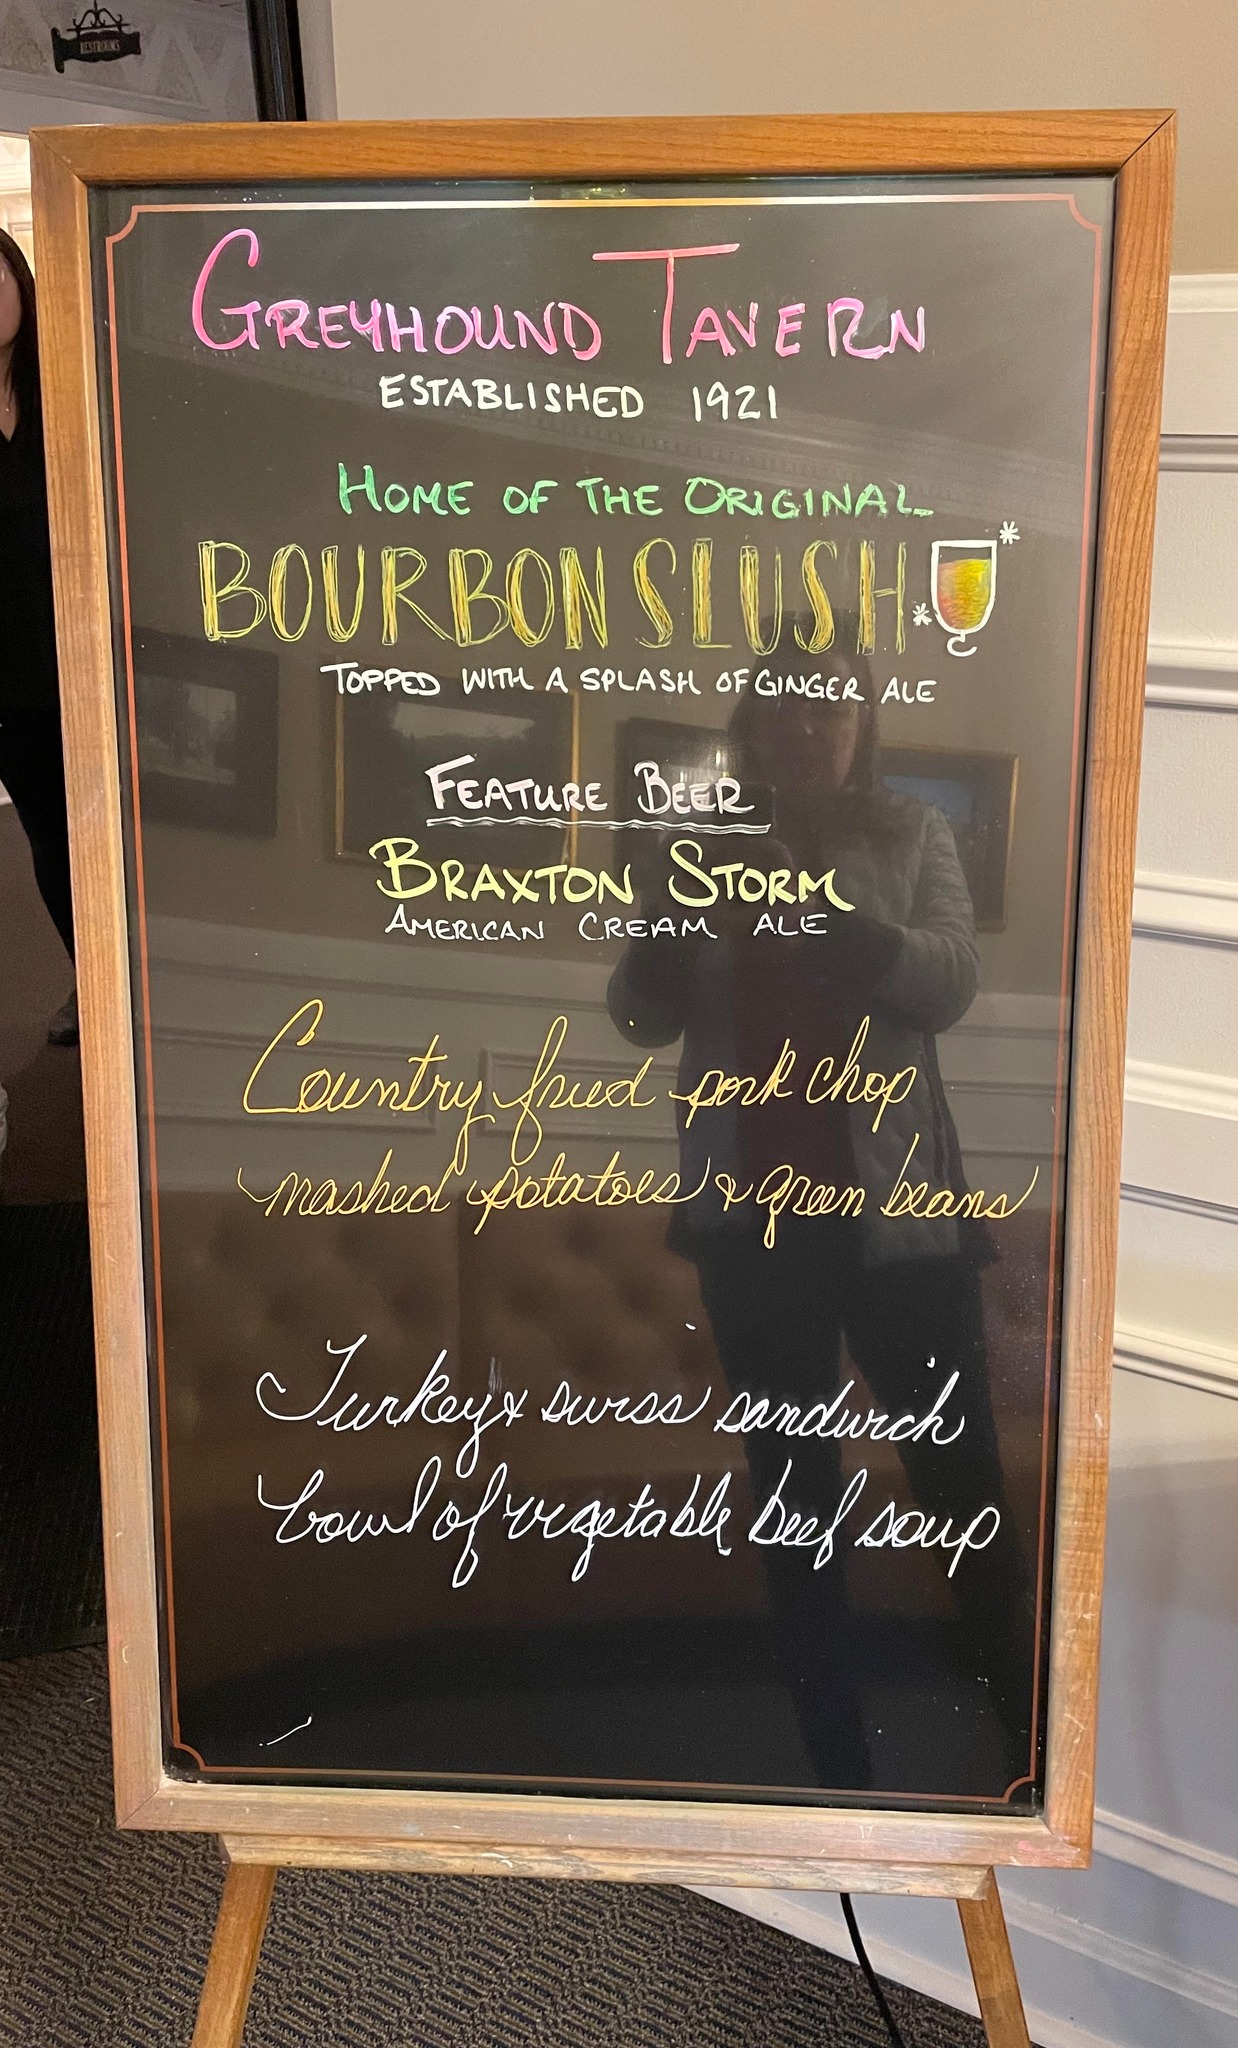 RESTROOMS
GREYHOUND TAVERN
ESTABLISHED 1921
HOME OF THE ORIGINAL
BOURBON SLUSH
TOPPED WITH A SPLASH OF GINGER ALE
FEATURE BEER
BRAXTON STORM
AMERICAN CREAM ALE
Country fried pork chop
mashed potatoes & green beans
Turkey & swiss sandwich
bowl of vegetable beef soup